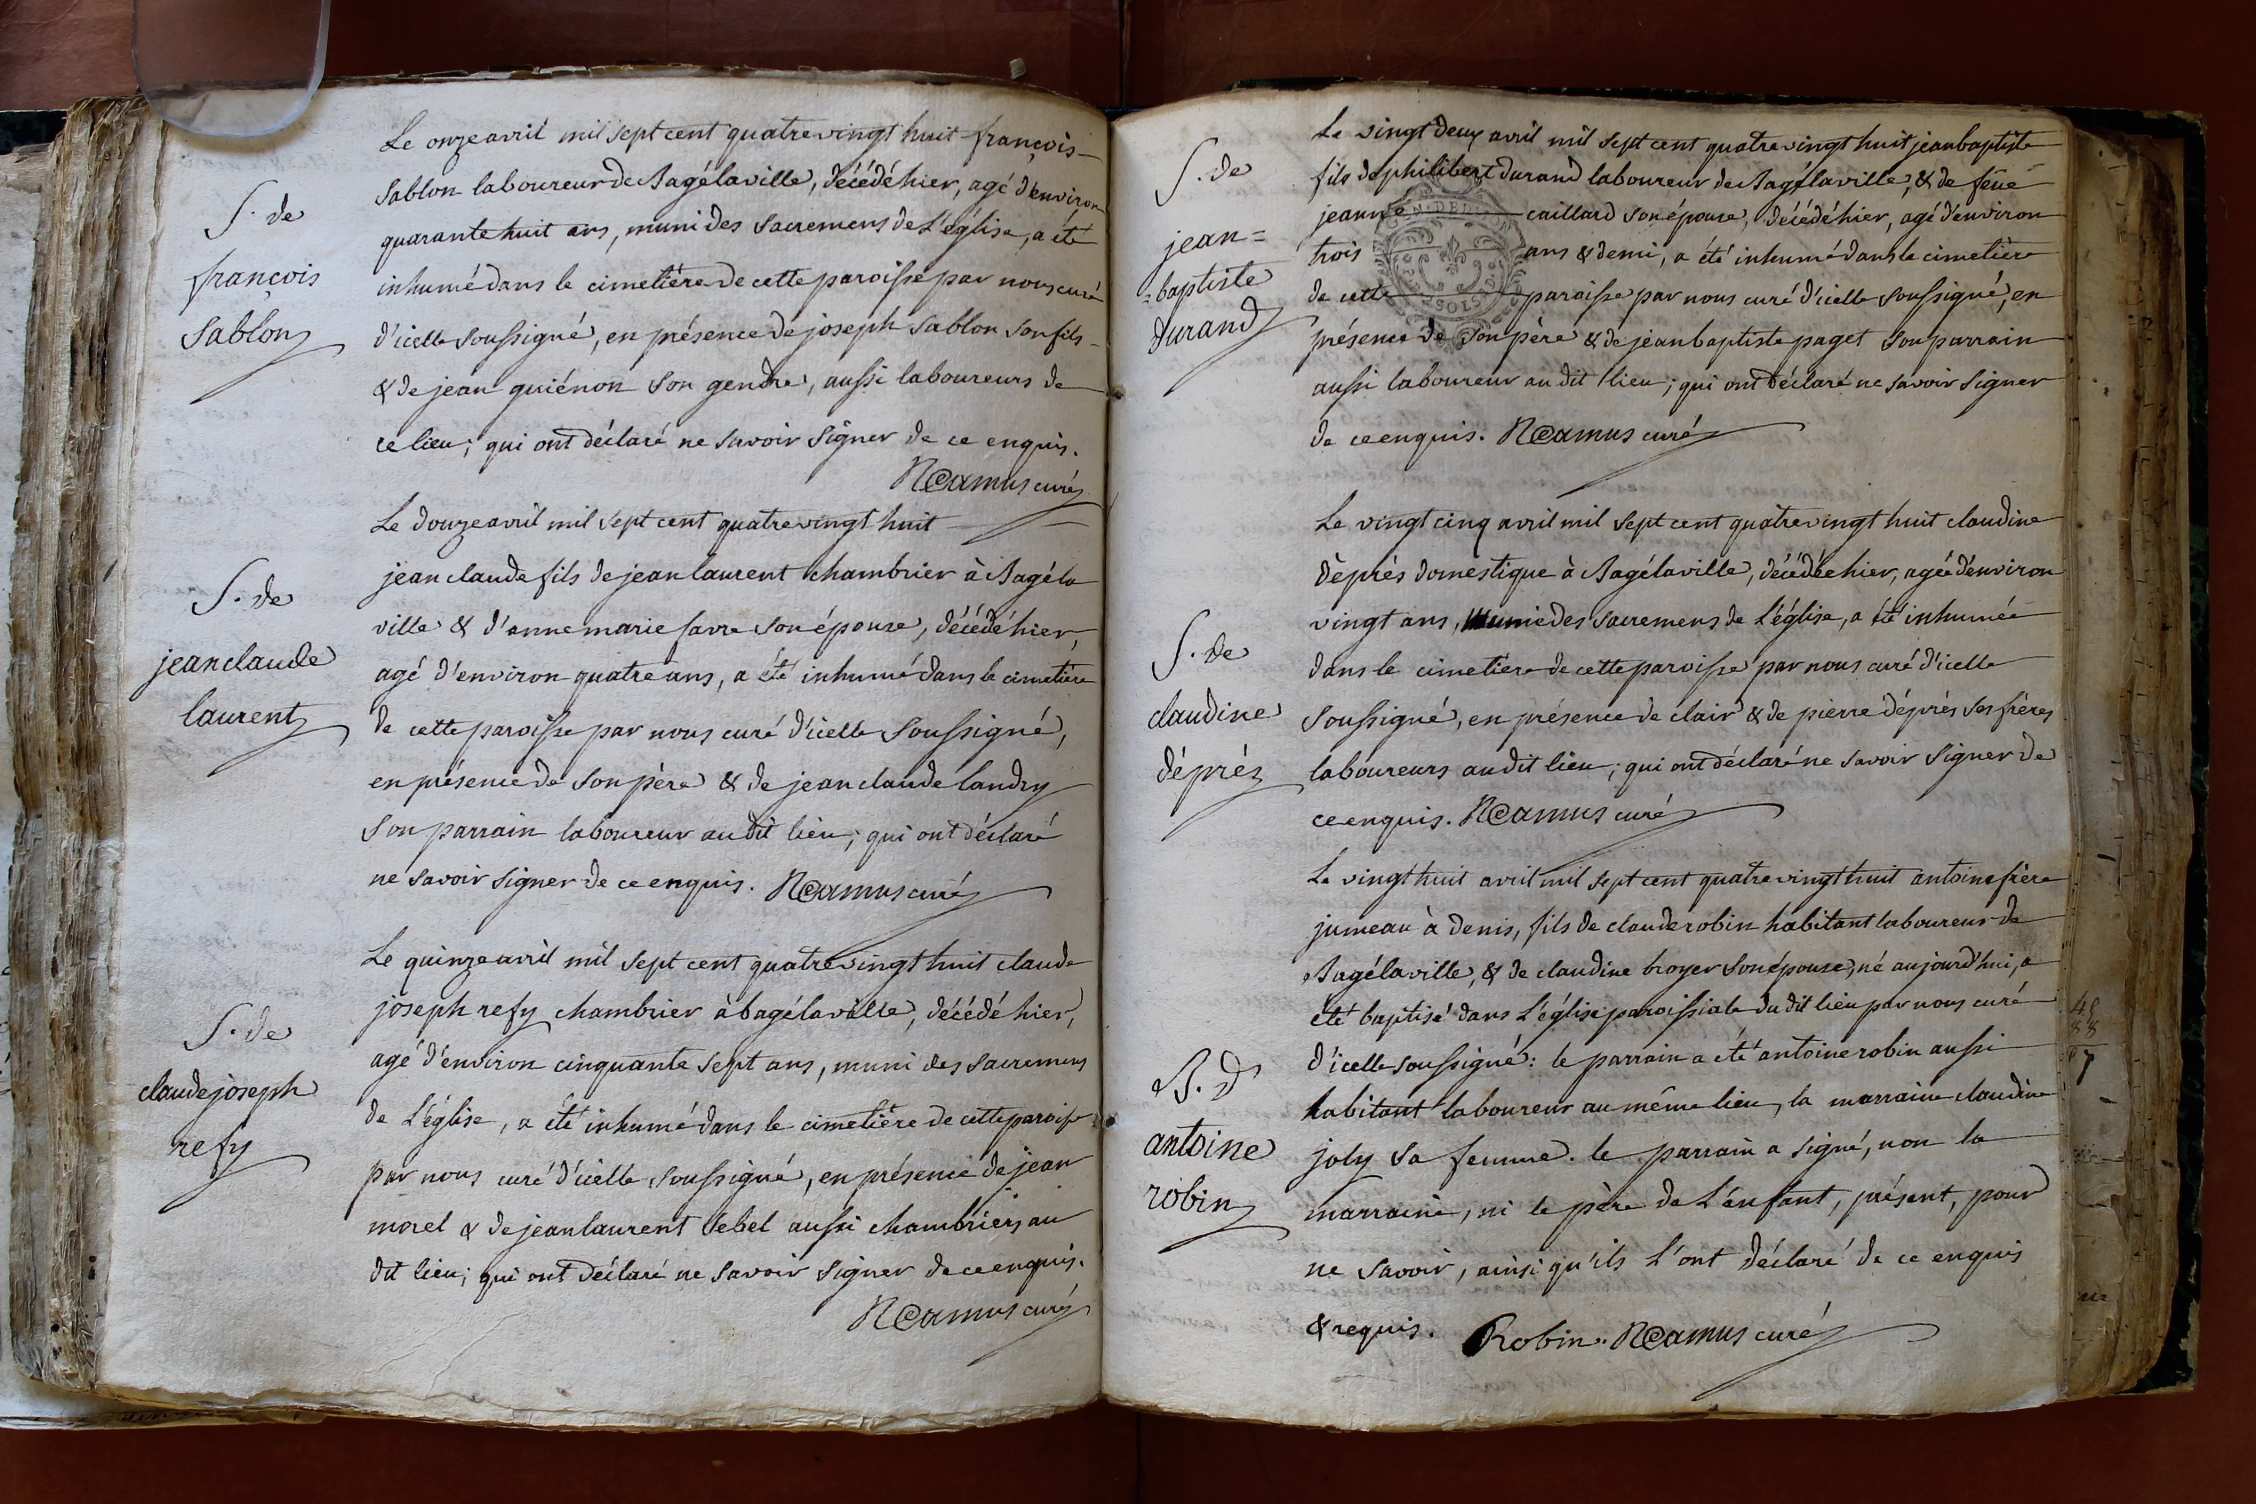 S. de
françois
Sablon
Le onze avril mil sept cent quatre vingt huit françois
Sablon laboureur de Bagélaville, décédé hier, agé d'environ
quarante huit ans, muni des Sacremens de L'église, a été
inhumé dans le cimetière de cette paroisse par nous curé
d'icelle soussigné, en présence de joseph Sablon son fils
& de jean guiénon son gendre, aussi laboureurs de
ce lieu; qui ont déclaré ne savoir signer de ce enquis.
NCamus curé
S. de
jean claude
laurent
Le douze avril mil sept cent quatre vingt huit
jean claude fils de jean laurent chambrier à Bagéla
ville & d'anne marie favre son épouse, décédé hier,
agé d'environ quatre ans, a été inhumé dans le cimetière
de cette paroisse par nous curé d'icelle soussigné,
en présence de son père & de jean claude landry
son parrain laboureur au dit lieu; qui ont déclaré
ne savoir signer de ce enquis. NCamus curé
S. de
claude joseph
refy
Le quinze avril mil sept cent quatre vingt huit claude
joseph refy chambrier à bagélaville, décédé hier,
agé d'environ cinquante sept ans, muni des sacremens
de L'église, a été inhumé dans le cimetière de cette paroisse
par nous curé d'icelle soussigné, en présence de jean
morel & de jean laurent lebel aussi chambriers au
dit lieu; qui ont déclaré ne savoir signer de ce enquis.
NCamus curé
S. de
jean=
=baptiste
durand
Le vingt deux avril mil sept cent quatre vingt huit jean baptiste
fils de philibert durand laboureur de Bagélaville, & de feue
jeanne caillard son épouse, décédé hier, agé d'environ
trois ans & demi, a été inhumé dans le cimetière
de cette paroisse par nous curé d'icelle soussigné, en
présence de son père & de jean baptiste paget son parrain
aussi laboureur au dit lieu; qui ont déclaré ne savoir signer
de ce enquis. NCamus curé
S. de
claudine
dépréz
Le vingt cinq avril mil sept cent quatre vingt huit claudine
déprés domestique à Bagélaville, décédée hier, agée d'environ
vingt ans, munie des sacremens de L'église, a été inhumée
dans le cimetiere de cette paroisse par nous curé d'icelle
soussigné, en présence de clair & de pierre déprés ses frères
laboureurs au dit lieu; qui ont déclaré ne savoir signer de
ce enquis. NCamus curé
B. d
antoine
robin
Le vingt huit avril mil sept cent quatre vingt huit antoine frère
jumeau à denis, fils de claude robin habitant laboureur de
Bagélaville, & de claudine broyer son épouse, né aujourd'hui, a
été baptisé dans L'église paroissiale du dit lieu par nous curé
d'icelle soussigné: le parrain a été antoine robin aussi
habitant laboureur au même lieu, la marraine claudine
joly sa femme. le parrain a signé, non la
marraine, ni le père de L'enfant, présent, pour
ne savoir, ainsi qu'ils L'ont déclaré de ce enquis
& requis. Robin. NCamus curé